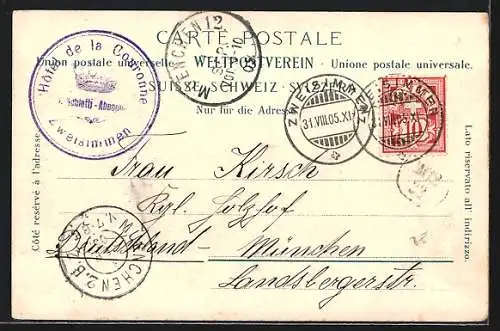 CARTE POSTALE
Union postale universelle. WELTPOSTVEREIN Unione postale universale.
SUISSE. SCHWEIZ.
Nur für die Adresse
Côté réservé à l'adresse
Lato riservato all' indirizzo.
Hôtel de la Couronne
Zweisimmen
MUENCHEN 12
ZWEISIMMEN
31.VIII.05.XI
ZWEISIMMEN
10
Frau Kirsch
Kgl. Holzhof
Deutschland München
Landsbergerstr.
MUENCHEN 2.B.